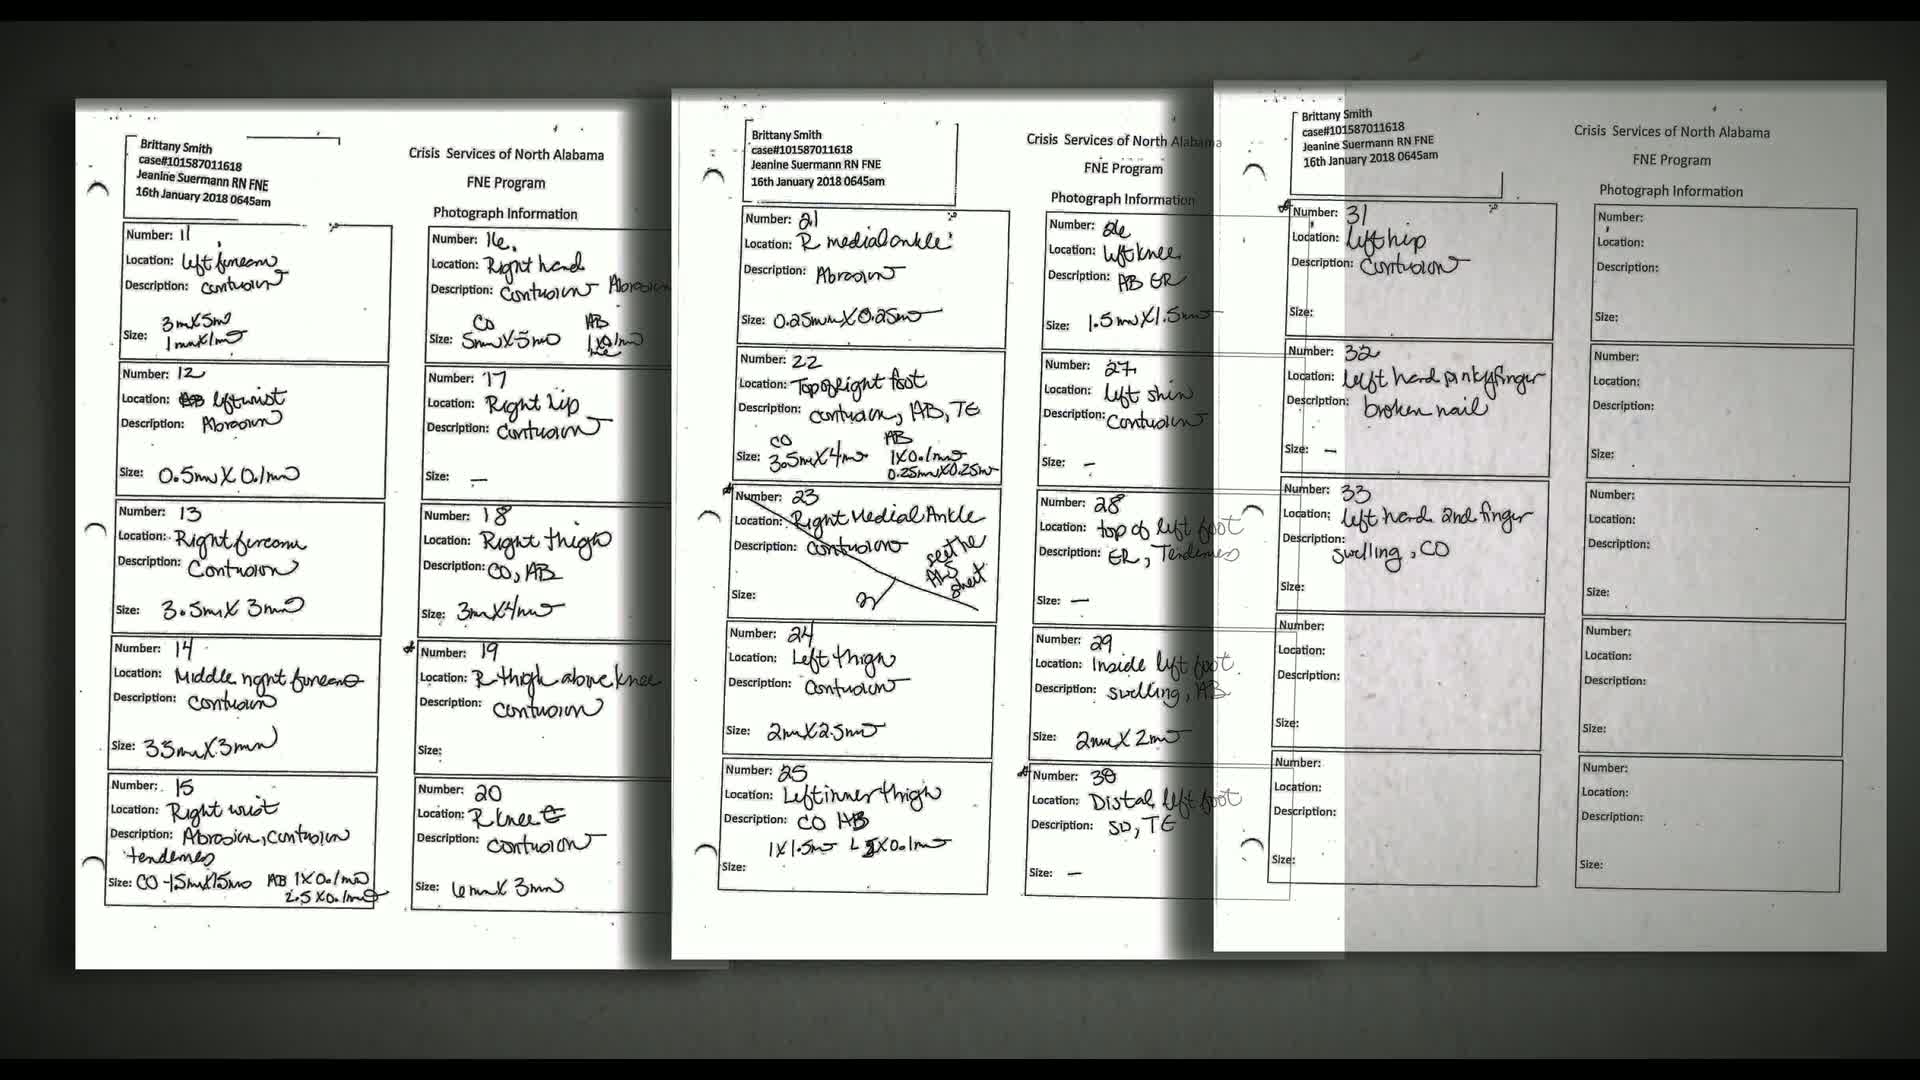 Brittany Smith
case#101587011618
Jeanine Suermann RN FNE
16th January 2018 0645am
Crisis Services of North Alabama
FNE Program
Photograph Information
Number: 11
Location: left forearm
Description: contusion
Size: 3mmX5mm
1mmX1mm
Number: 12
Location: left wrist
Description: Abrasion
Size: 0.5mm X 0.1mm
Number: 13
Location: Right forearm
Description: Contusion
Size: 3.5mm X 3mm
Number: 14
Location: Middle right forearm
Description: contusion
Size: 35mm X 3mm
Number: 15
Location: Right wrist
Description: Abrasion, contusion
tenderness
Size: CO 15mmX15mm AB 1X0.1mm
2.5X0.1mm
Number: 16.
Location: Right hand
Description: Contusion Abrasion
CO AB
Size: 5mmX5mm
Number: 17
Location: Right hip
Description: Contusion
Size: —
Number: 18
Location: Right thigh
Description: CO, AB
Size: 3mmX4mm
Number: 19
Location: R thigh above knee
Description: Contusion
Size:
Number: 20
Location: R knee
Description: Contusion
Size: 6mm X 3mm
Brittany Smith
case#101587011618
Jeanine Suermann RN FNE
16th January 2018 0645am
Crisis Services of North Alabama
FNE Program
Photograph Information
Number: 21
Location: R medial ankle
Description: Abrasion
Size: 0.25mmX0.25mm
Number: 22
Location: Top of Right foot
Description: contusion, AB, TE
CO AB
Size: 3.5mmX4mm 1X0.1mm
0.25mmX0.25mm
Number: 23
Location: Right Medial Ankle
Description: Contusion
see the
ALS
sheet
Size:
Number: 24
Location: Left thigh
Description: Contusion
Size: 2mmX2.5mm
Number: 25
Location: Left inner thigh
Description: CO AB
1X1.5mm
Size:
Number: 26
Location: left knee
Description: AB ER
Size: 1.5mmX1.5mm
Number: 27
Location: left shin
Description: Contusion
Size: —
Number: 28
Location: top of left foot
Description: ER, Tenderness
Size: —
Number: 29
Location: Inside left foot
Description: swelling, AB
Size: 2mmX2mm
Number: 30
Location: Distal left foot
Description: SD, TE
Size: —
Brittany Smith
case#101587011618
Jeanine Suermann RN FNE
16th January 2018 0645am
Crisis Services of North Alabama
FNE Program
Photograph Information
Number: 31
Location: left hip
Description: Contusion
Size:
Number: 32
Location: left hand pinky finger
Description: broken nail
Size: —
Number: 33
Location: left hand 2nd finger
Description: swelling, CO
Size:
Number:
Location:
Description:
Size:
Number:
Location:
Description:
Size:
Number:
Location:
Description:
Size:
Number:
Location:
Description:
Size:
Number:
Location:
Description:
Size:
Number:
Location:
Description:
Size:
Number:
Location:
Description:
Size: